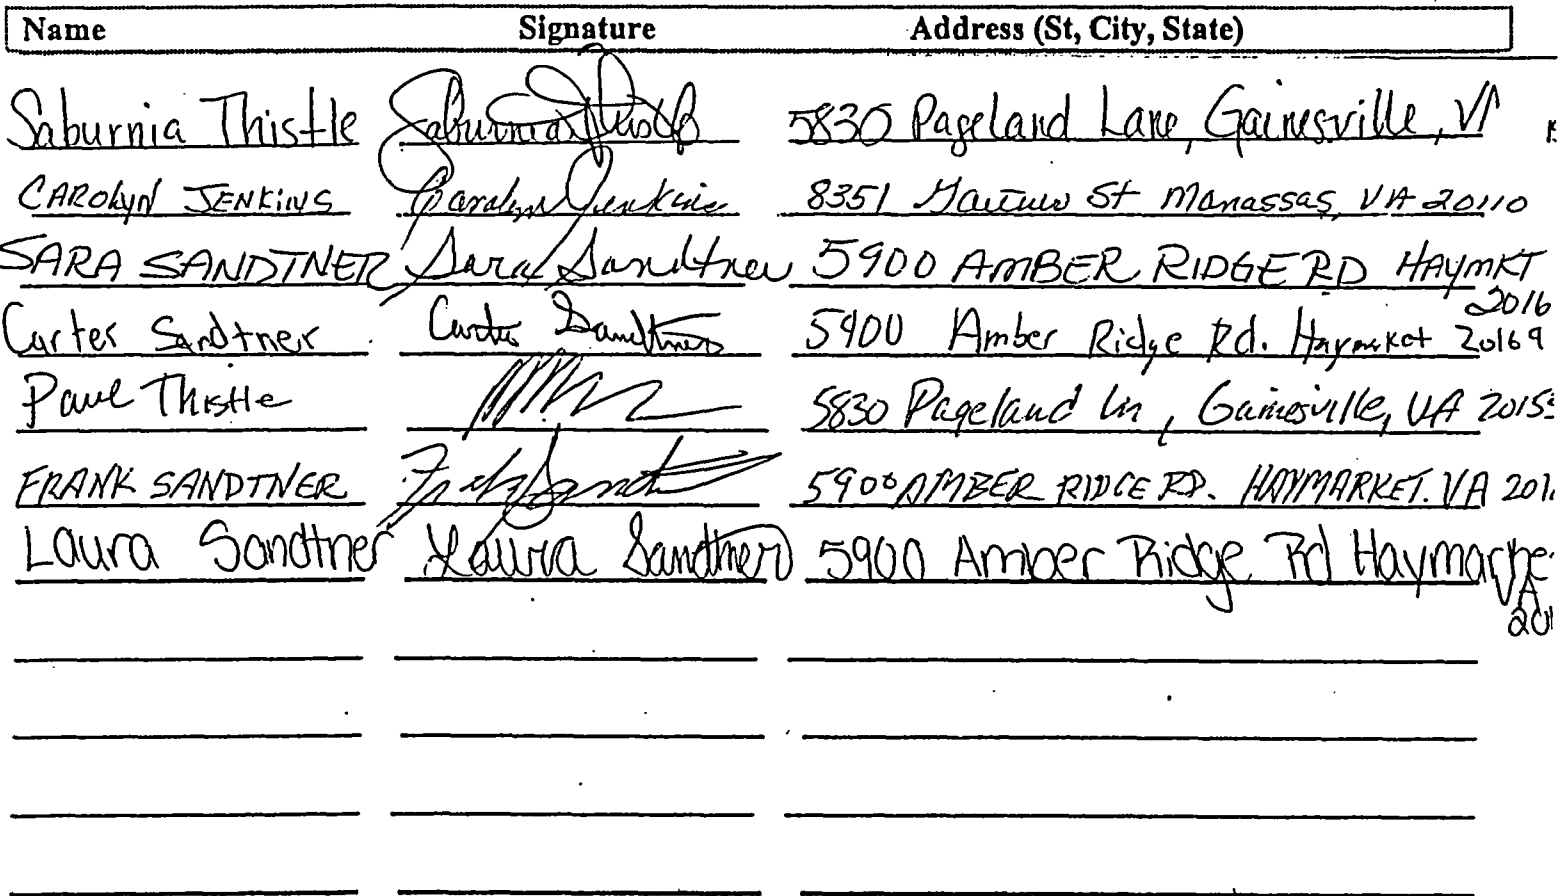 Name Signature Address (St, City, State)
Saburnia Thistle Saburnia Thistle 5830 Pageland Lane, Gainesville, VA
CAROLYN JENKINS Carolyn Jenkins 8351 St Manassas, VA 20110
SARA SANDTNER Sara Sandtner 5900 AMBER RIDGE RD HAYMKT
2016
Carter Sandtner Carter Sandtner 5900 Amber Ridge Rd. Haymarket 20169
Paul Thistle 5830 Pageland Ln, Gainesville, VA 2015
FRANK SANDTNER Frank Sandtner 5900 AMBER RIDGE RD. HAYMARKET. VA 201
Laura Sandtner Laura Sandtner 5900 Amber Ridge Rd Haymarke
VA
20